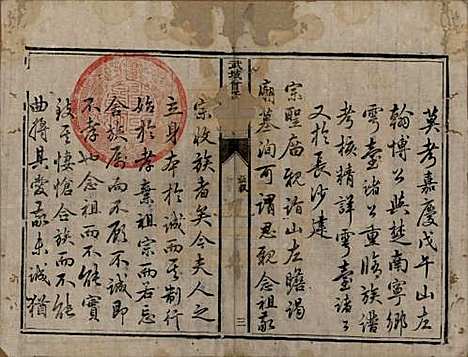 莫考嘉慶戊午山左
翰博公與楚南寧鄉
雩臺諸公重修族譜
考核精詳雩臺諸公
又於長沙建
宗聖廟親詣山左瞻謁
廟墓洵可謂思親念祖敬
武城曾氏
二
宗收族者矣今夫人之
立身本於誠而其制行
始於孝棄祖宗而若忘
舍族唇而不顧不誠即
不孝也念祖而不能實
致其悽愴合族而不能
曲將其愛敬未誠猶